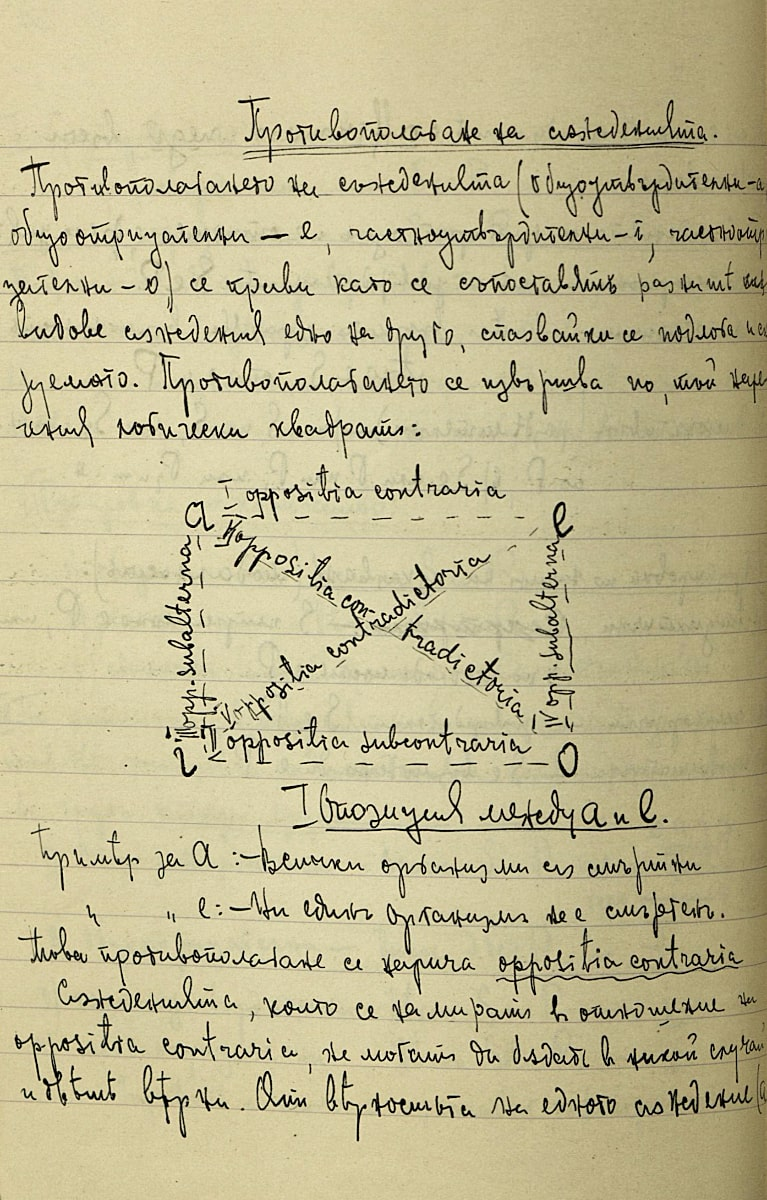 Противополагане на сѫжденията.
Противополагането на сѫжденията (общоутвърдителни-а
общоотрицателни — е, частноутвърдителни-i, частноотр
цателни - о) се прави като се съпоставятъ разнитѣ
видове сѫждения едно на друго, спазвайки се подлога и ска
зуемото. Противополагането се извършва по, тъй наре
чения логически квадратъ:
I oppositia contraria
a e
V oppositia contradictoria
oppositia contradictoria
III opp. subalterna
IV opp. subalterna
II oppositia subcontraria
i o
I Опозиция между а и е.
Примѣр за а :- Всички организми сѫ смъртни
" " е :- Ни единъ организмъ не е смъртенъ.
Това противополагане се нарича oppositia contraria
Сѫжденията, които се намиратъ в отношение на
oppositia contraria, не могатъ да бѫдатъ в никой случай
и двѣтѣ вѣрни. От вѣрностьта на едното сѫждение (а